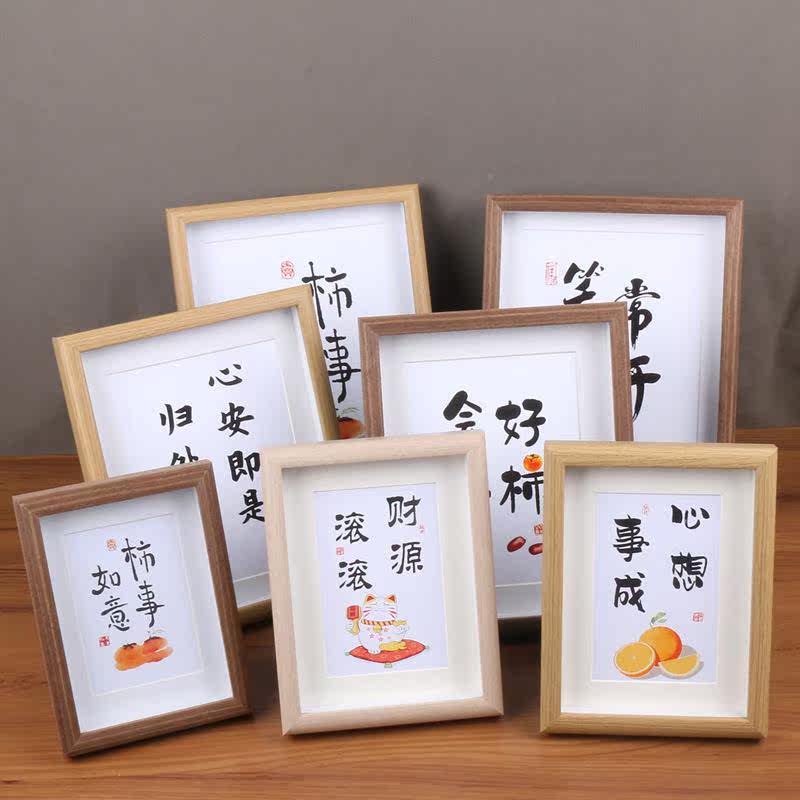 柿事
常
心安即是
归
好柿
会
柿事
如意
财源
滚滚
心想
事成